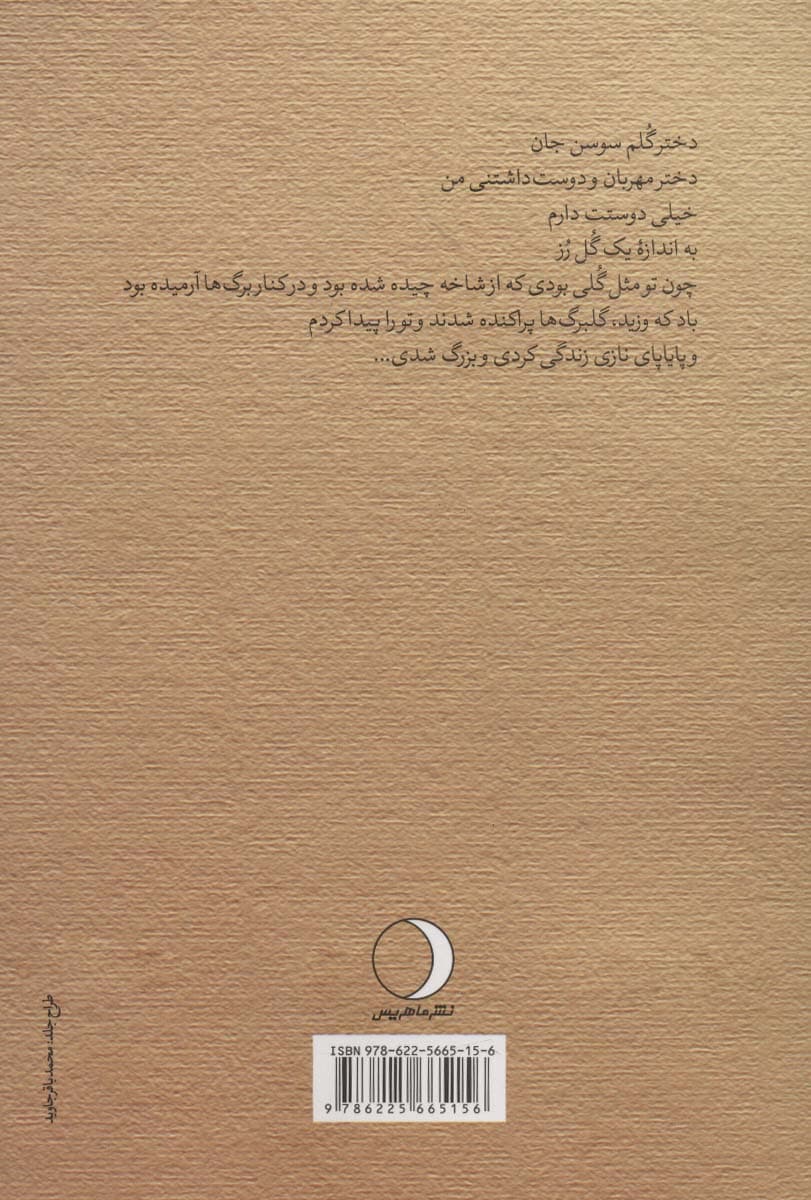 دختر گُلم سوسن جان
دختر مهربان و دوست‌داشتنی من
خیلی دوستت دارم
به اندازهٔ یک گُل رُز
چون تو مثل گُلی بودی که از شاخه چیده شده بود و در کنار برگ‌ها آرمیده بود
باد که وزید، گلبرگ‌ها پراکنده شدند و تو را پیدا کردم
و پایاپای نازی زندگی کردی و بزرگ شدی...
نشر ماهریس
ISBN 978-622-5665-15-6
9 786225 665156
طراح جلد: محمدباقر جاوید